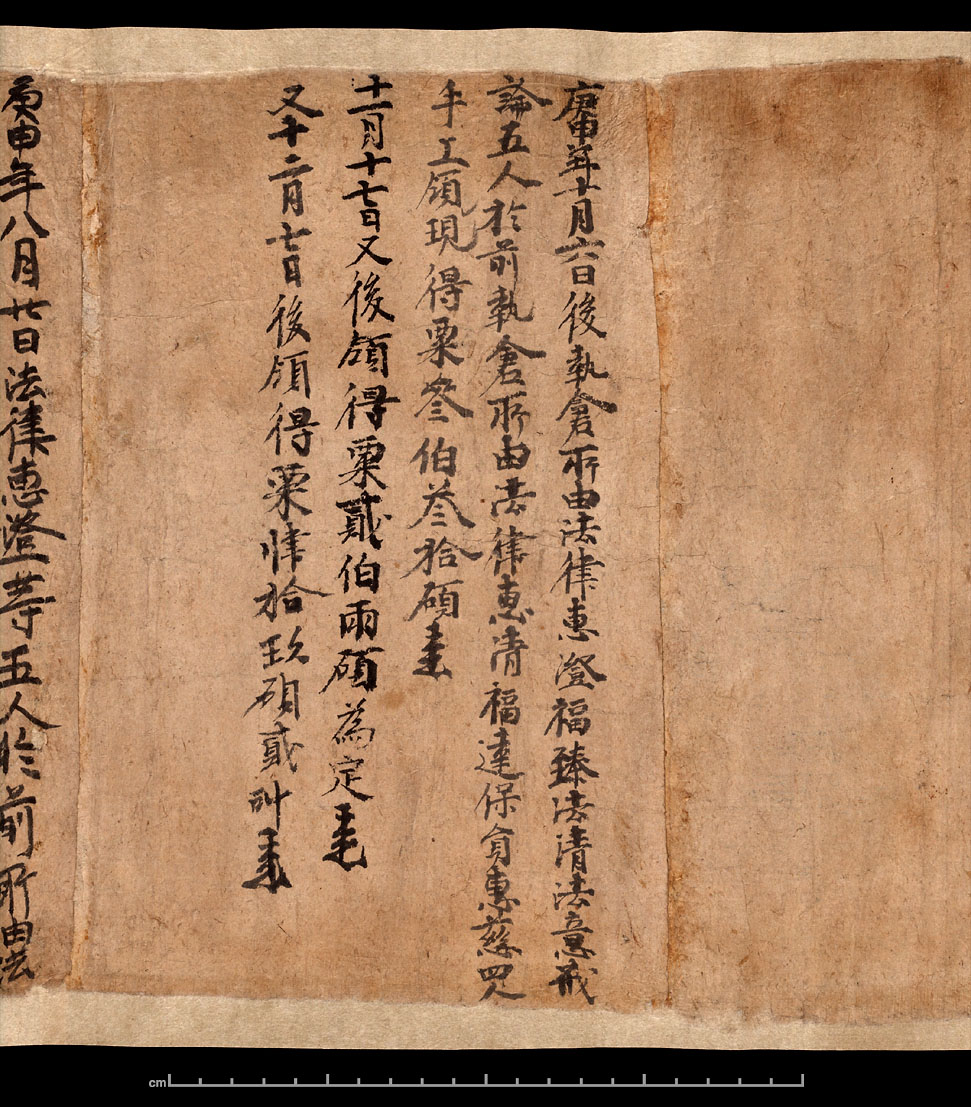 庚申年十月六日後執倉所由法律惠澄福臻法清法意戒
論五人於前執倉所由法律惠清福達保貪惠慈四人
手工領現得粟叁伯叁拾碩
十一月十七日又後領得粟貳伯兩碩為定
又十二月七日後領得粟肆拾玖碩貳㪷
庚申年八月廿日法律惠澄等五人於前所由法
cm